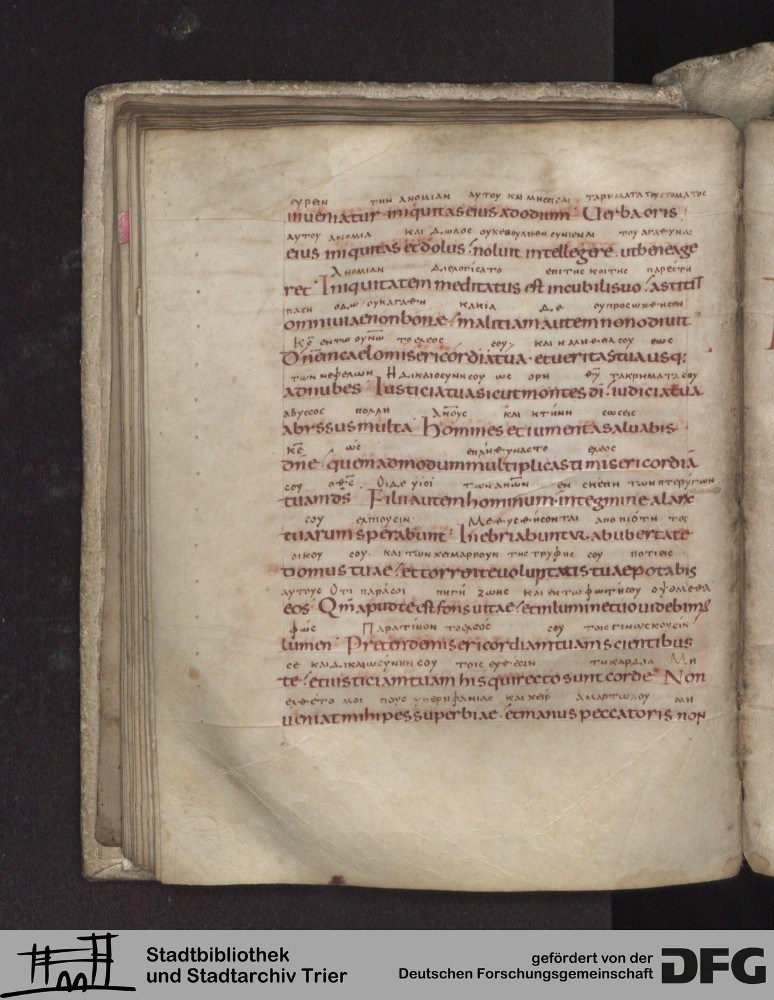 ευρειν την ανομιαν αυτου και μησεισαι τα ρηματα του στοματος
inueniatur iniquitas eius ad odium Uerba oris
αυτου ανομια και δωλος ουκ εβουληθη συνιεναι του αγαθυναι
eius iniquitas et dolus noluit intellegere ut bene age
Ανομιαν διελογισατο επι της κοιτης παρεστη
ret Iniquitatem meditatus est in cubili suo astitit
παση οδω ουκ αγαθη κακια δε ου προσωχθησεν
omni uiae non bonae malitiam autem non odiuit
Κε εν τω ουνω το ελεος σου και η αληθεια σου εως
Dne in caelo misericordia tua et ueritas tua usq;
των νεφελων Η δικαιοσυνη σου ως ορη θυ τα κριματα σου
ad nubes Iusticia tua sicut montes di iudicia tua
αβυσσος πολλη ανους και κτηνη σωσεις
abyssus multa Homines et iumenta saluabis
κε ως επληθυνας το ελεος
dne quemadmodum multiplicasti misericordiā
σου ο θς Οι δε υιοι των ανων εν σκεπη των πτερυγων
tuam ds Filii autem hominum in tegmine alarū
σου ελπιουσιν Μεθυσθησονται απο πιοτητος
tuarum sperabunt Inebriabuntur ab ubertate
οικου σου και των χειμαρρουν της τρυφης σου ποτιεις
domus tuae et torrente uoluptatis tuae potabis
αυτους Οτι παρα σοι πηγη ζωης και εν τω φωτι σου οψομεθα
eos Qm apud te est fons uitae et in lumine tuo uidebimus
φως Παρατινον το ελεος σου τοις γινωσκουσιν
lumen Pretende misericordiam tuam scientibus
σε και δικαιωσυνην σου τοις ευθεσιν τη καρδια Μη
te et iusticiam tuam his qui recto sunt corde Non
ελθετο μοι πους υπερηφανιας και χειρ αμαρτωλου μη
ueniat mihi pes superbiae et manus peccatoris non
Stadtbibliothek
und Stadtarchiv Trier
gefördert von der
Deutschen Forschungsgemeinschaft
DFG